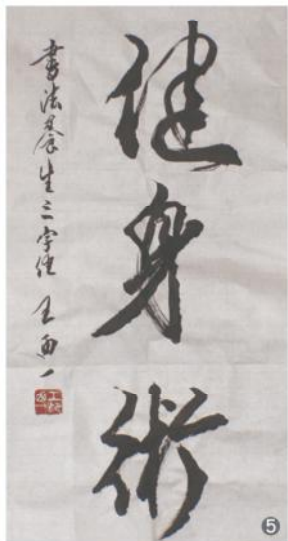 健身術
書法養生三字經 王西一
5